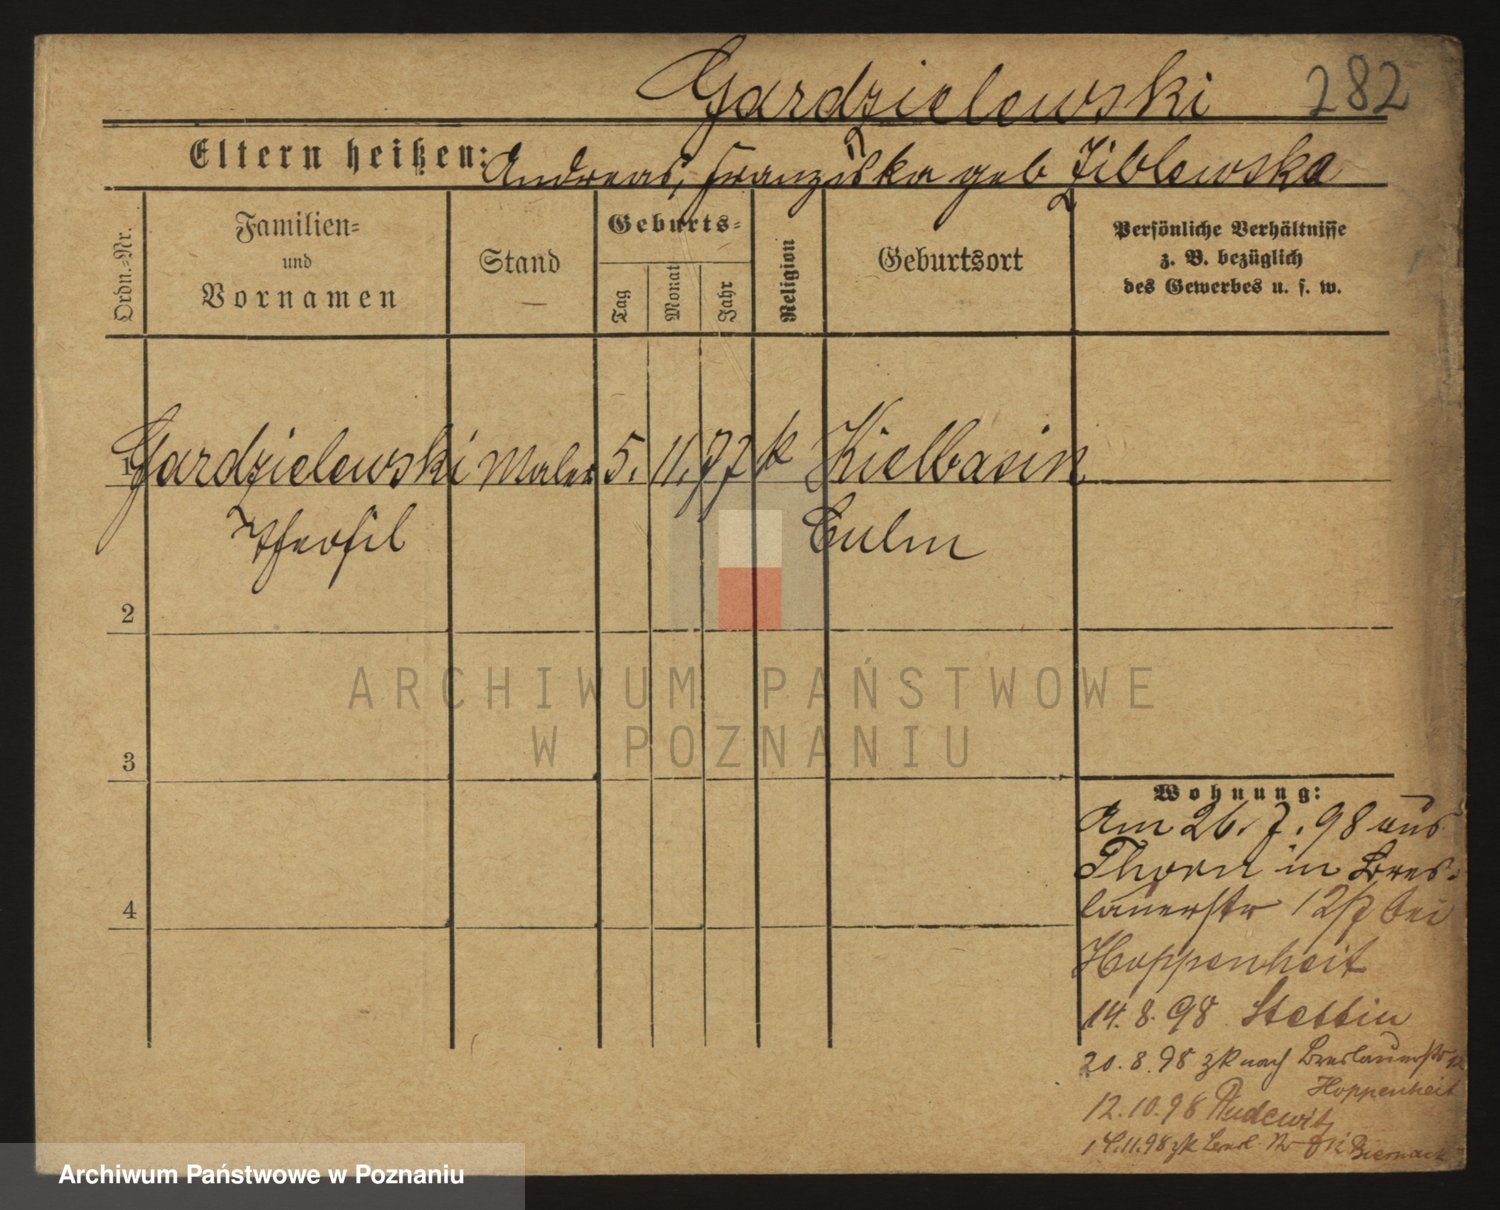 Gardzielewski 282
Eltern heißen: Andreas, Franziska geb Ziblewska
Ordn.-Nr.
Familien-
und
Vornamen
Stand
Geburts-
Tag
Monat
Jahr
Religion
Geburtsort
Persönliche Verhältnisse
z. B. bezüglich
des Gewerbes u. s. w.
1 Gardzielewski Maler 5. 11. 77 k Kielbasin
Theofil Culm
2
3
4
Wohnung:
Am 26. 7. 98 aus
Thorn in Bres-
lauerstr 12/7 bei
Hoppenheit
14. 8. 98 Stettin
20. 8. 98 zk nach Breslauerstr 12
Hoppenheit
12. 10. 98 Pudewitz
14. 11. 98 zk Bresl. Str
ARCHIWUM PAŃSTWOWE
W POZNANIU
Archiwum Państwowe w Poznaniu